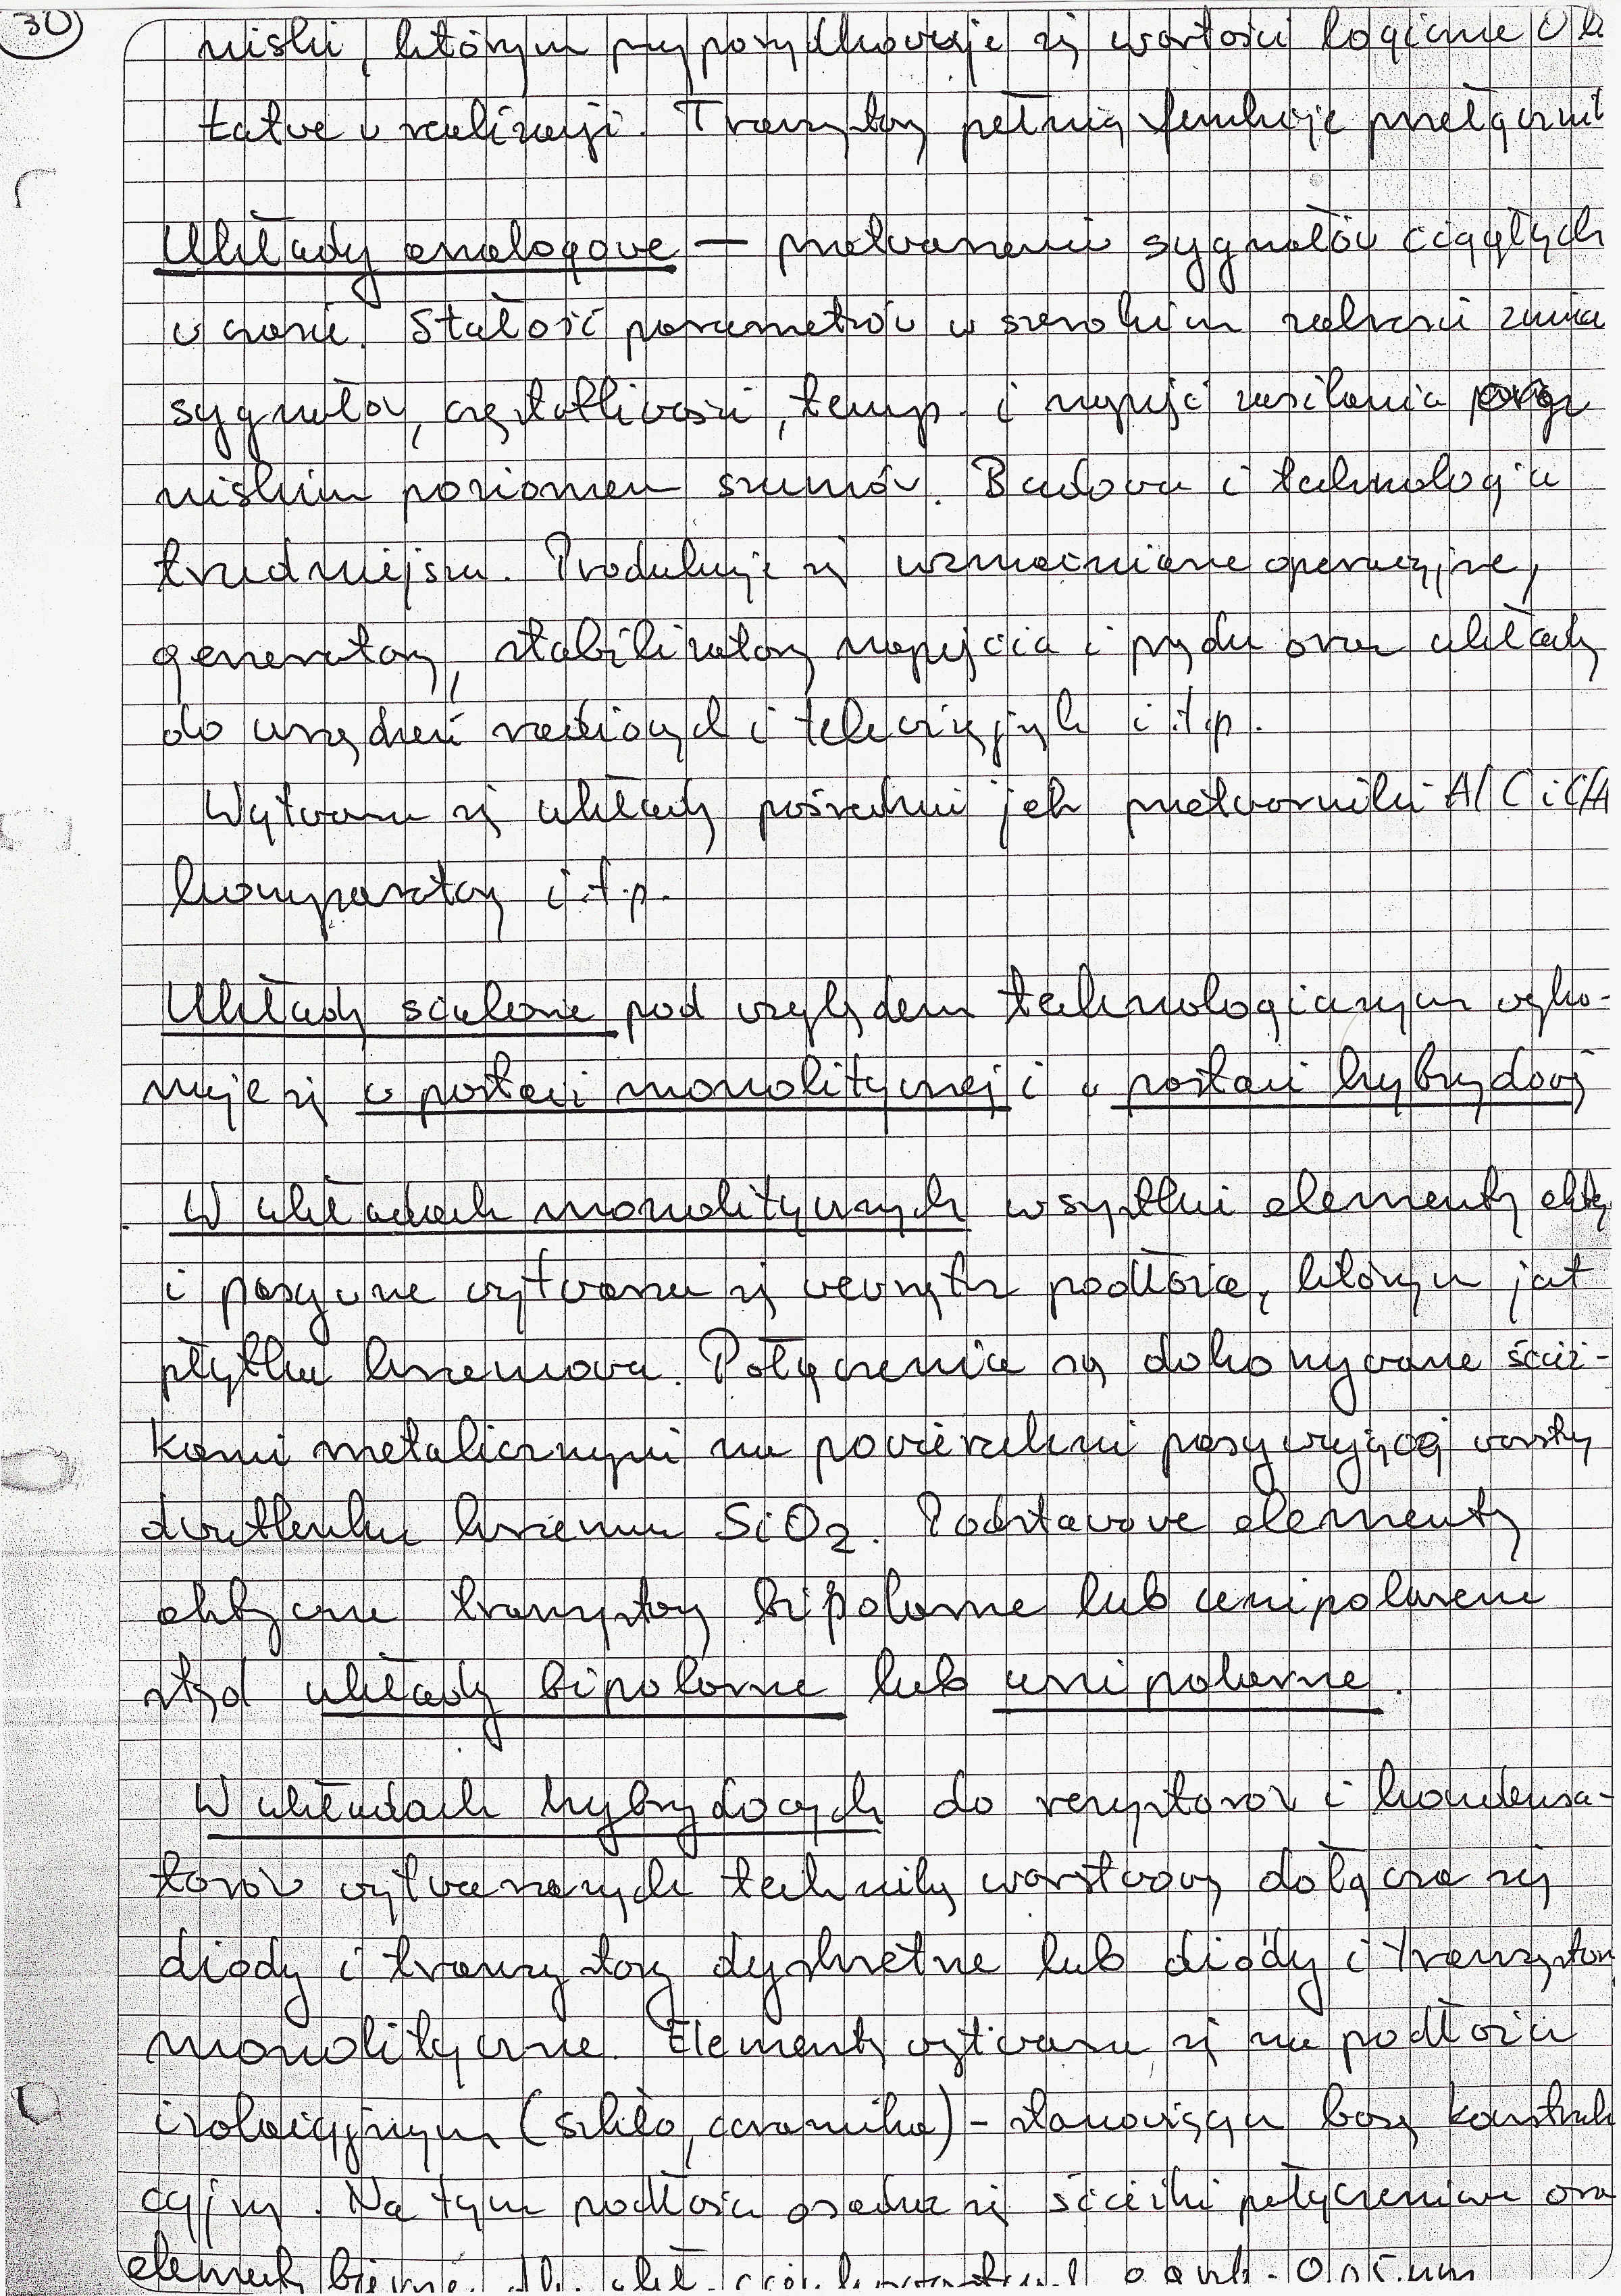 30
niski, którym przyporządkowuje się wartości logiczne 0 lu
łatwe w realizacji. Tranzystory pełnią funkcję przełącznik
Układy analogowe — przetwarzanie sygnałów ciągłych
w czasie. Stałość parametrów w szerokim zakresie zmia
sygnałów, częstotliwości, temp. i napięć zasilania przy
niskim poziomem szumów. Budowa i technologia
trudniejsza. Produkuje się wzmacniacze operacyjne,
generatory, stabilizatory napięcia i prądu oraz układy
do urządzeń radiowych i telewizyjnych i t.p.
Wytwarza się układy pośrednie jak przetworniki A/C i C/A
komparatory i t.p.
Układy scalone pod względem technologicznym wyko-
nuje się w postaci monolitycznej i w postaci hybrydowej
W układach monolitycznych wszystkie elementy akty
i pasywne wytwarza się wewnątrz podłoża, którym jest
płytka krzemowa. Połączenia są dokonywane ścież-
kami metalicznymi na powierzchni pasywującej warstwy
dwutlenku krzemu SiO2. Podstawowe elementy
aktywne tranzystory bipolarne lub unipolarne
stąd układy bipolarne lub unipolarne.
W układach hybrydowych do rezystorów i kondensa-
torów wytwarzanych techniką warstwową dołącza się
diody i tranzystory dyskretne lub diody i tranzystory
monolityczne. Elementy wytwarza się na podłożu
izolacyjnym (szkło, ceramika) - stanowiącym bazę konstruk
cyjną. Na tym podłożu osadza się ścieżki połączeniowe ora
elementy bierne.